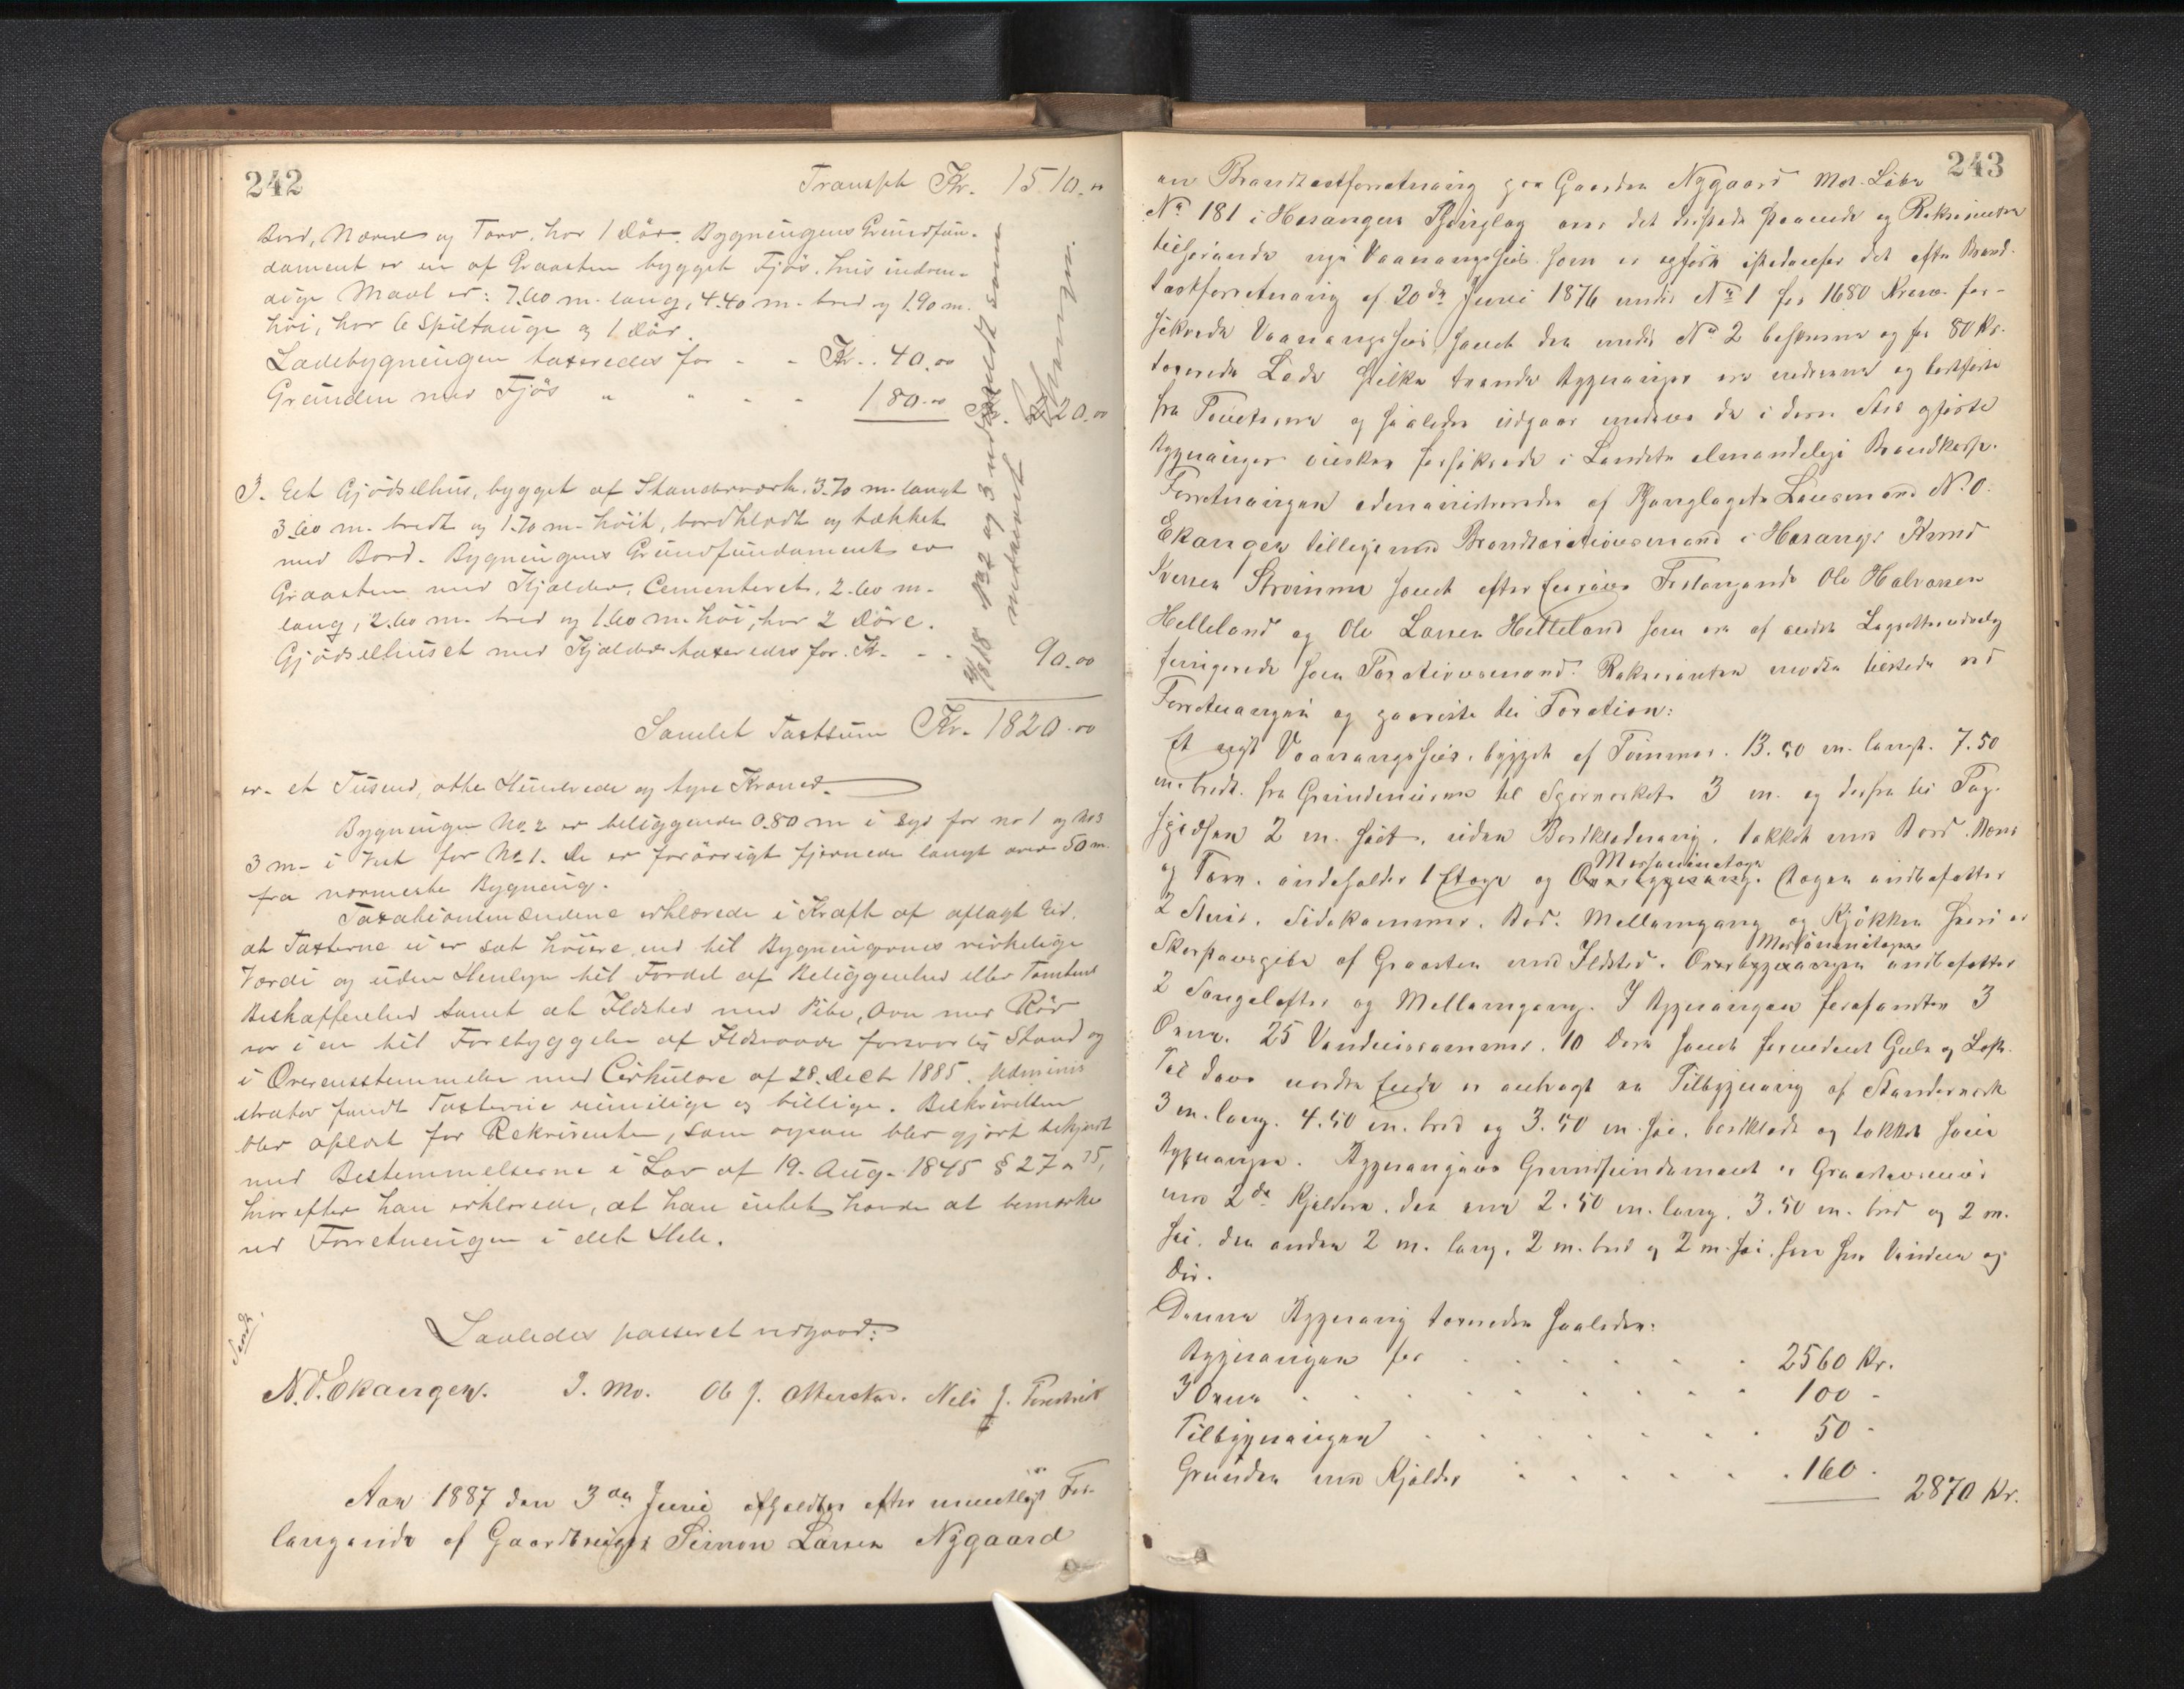 242
Transpt Kr. 1510.00
Bord, Næver og Torv, har 1 Dör. Bygningens Grundfun-
dament er en af Graasten bygget Fjös, hvis indven-
dige Maal er: 7.60 m. lang, 4.40 m. bred og 1.90 m.
höi, har 6 Spiltauge og 1 Dör.
Ladebygningen taxeredes for - - Kr. 40.00
Grunden med Fjös " " - - 180.00 220.00
3. Eet Gjödselhus, bygget af Standerværk, 3.70 m. langt
3.60 m. bredt og 1.70 m. höit, bordklædt og tækket
med Bord. Bygningens Grundfundament er
Graasten med Kjælder, Cementeret, 2.60 m.
lang, 2.60 m. bred og 1.60 m. höi, har 2 Döre.
Gjödselhuset med Kjælder taxeredes for Kr. - - 90.00
No 2 og 3 udmeldt som
nedrevet Ekanger.
Samlet Taxtsum Kr. 1820.00
er et Tusend, otte Hundrede og tyve Kroner.
Bygningen No 2 er beliggende 0.80 m i Syd for no 1 og No 3
3 m- i Vest for No 1. De er forövrigt fjernede langt over 50 m.
fra nærmeste Bygning.
Taxationsmændene erklærede i Kraft af aflagt Eed,
at Taxterne ei er sat höiere end til Bygningernes virkelige
Værdi og uden Hensyn til Fordel af Beliggenhed eller Tomtens
Beskaffenhed samt at Ildsted med Pibe, Ovn med Rör
var i en til Forebyggelse af Ildsvaade forsvarlig Stand og
i Overensstemmelse med Cirkulære af 28. Decbr 1885. Adminis
trator fandt Taxterne rimelige og billige. Beskrivelsen
blev oplæst for Rekvirenten, som ogsaa blev gjort bekjendt
med Bestemmelserne i Lov af 19. Aug. 1845 § 27 a 35,
hvorefter han erklærede, at han intet havde at bemærke
ved Forretningen i det Hele.
Saaledes passeret vidgaar:
N. O. Ekanger. J. Mo. Ob J. Otterstad. Nels J.
Aar 1887 den 3de Juni afholdtes efter mundtligt For-
langende af Gaardbruger Simon Larsen Nygaard
243
en Brandtaxtforretning paa Gaarden Nygaard Mat. Löbe
No 181 i Hosangers Thinglag over det dersteds staaende og Rekvirenten
tilhörende nye Vaaningshuus som er opfört istedenfor det efter Brand-
taxtforretning af 20de Juni 1876 under No 1 for 1680 Kroner for-
sikrede Vaaningshuus samt den under No 2 beskrevne og for 80 Kr.
taxerede Lade hvilke tvende Bygninger ere nedrevne og bortförte
fra Tomterne og saaledes udgaar medens de i deres Sted opförte
Bygninger önskes forsikrede i Landets almindelige Brandkasse.
Forretningen administreredes af Thinglagets Lensmand N. O.
Ekanger tilligemed Brandtaxationsmænd i Hosanger Knud
Iversen Strömme samt efter Forlangende Ole Halvorsen
Helleland og Ole Larsen Helleland som er af Lagrettesudvalg
fungerede som Taxationsmænd. Rekvirenten mödte tilstede ved
Forretningen og paaviste til Taxation:
Et nyt Vaaningshuus, bygget af Tömmer. 13.50 m. langt. 7.50
m. bredt. fra Grundmuren til Sparværket 3 m. og derfra til Tag-
höiden 2 m. höit. uden Bordklædning, tækket med Bord. Næver
og Torv. indeholder 1 Etage og Overbygning. Messaninetage Etagen indbefatter
2 Stuer. Sidekammer. Bod. Mellemgang og Kjökken hvori er
Skorstenspibe af Graasten med Ildsted. Overbygningen Messaninetagen indbefatter
2 Sengelofter og Mellemgang. I Bygningen forefandtes 3
Ovne. 25 Vinduesrammer. 10 Döre samt fornödent Gulv og Loft.
Til dens nordre Ende er anbragt en Tilbygning af Standerværk
3 m. lang. 4.50 m. bred og 3.50 m. höi. bordklædt og tækket som
Bygningen. Bygningens Grundfundament er Graasteensmuur
med 2de Kjeldere. den ene 2.50 m. lang. 3.50 m. bred og 2 m.
höi. den anden 2 m. lang. 2 m. bred og 2 m. höi. hver har Vindue og
Dör.
Denne Bygning taxeredes saaledes:
Bygningen for . . . . . . 2560 Kr.
3 Ovne . . . . . . . 100 -
Tilbygningen . . . . . . . 50 -
Grunden med Kjelder . . . . . . 160 . 2870 Kr.